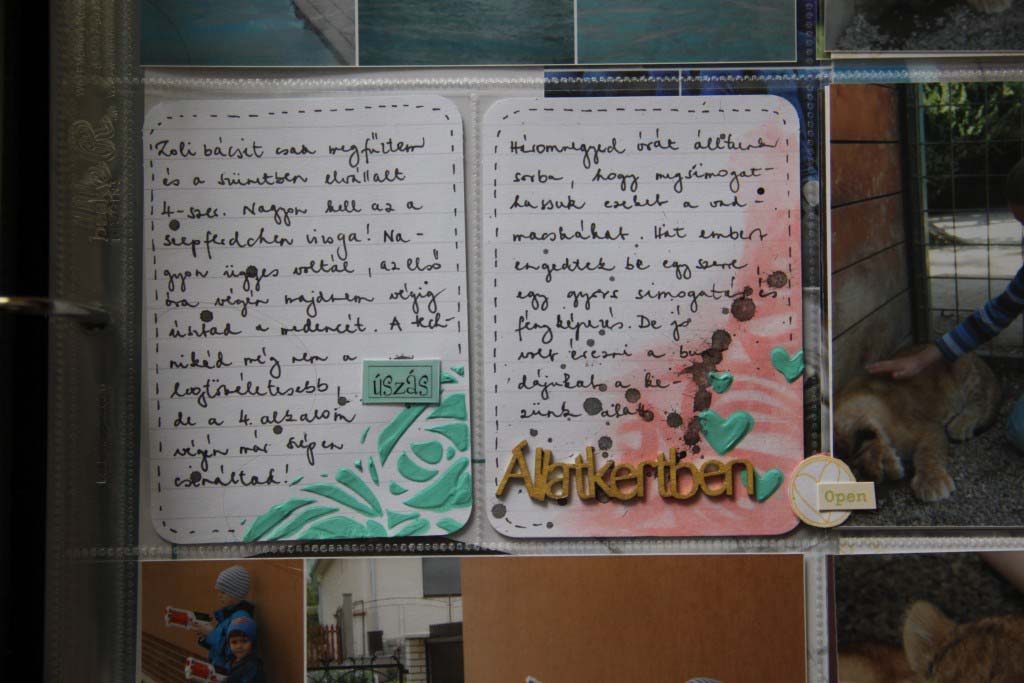 Zoli bácsit csak megfűztem
és a szünetben elvállalt
4-szer. Nagyon kell az a
seepferdchen vizsga! Na-
gyon ügyes voltál, az első
óra végén majdnem végig
úsztad a medencét. A tech-
nikád még nem a
legtökéletesebb
de a 4. alkalom
végén már szépen
csináltad!
úszás
Háromnegyed órát álltunk
sorba, hogy megsimogat-
hassuk ezeket a vad-
macskákat. Hat embert
engedtek be egyszerre
egy gyors simogatás és
fényképezés. De jó
volt érezni a bun-
dájukat a ke-
zünk alatt.
Állatkertben
Open